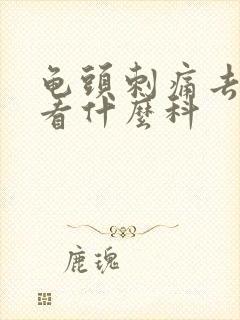 龟頭刺痛去
看什麼科
鹿瑰